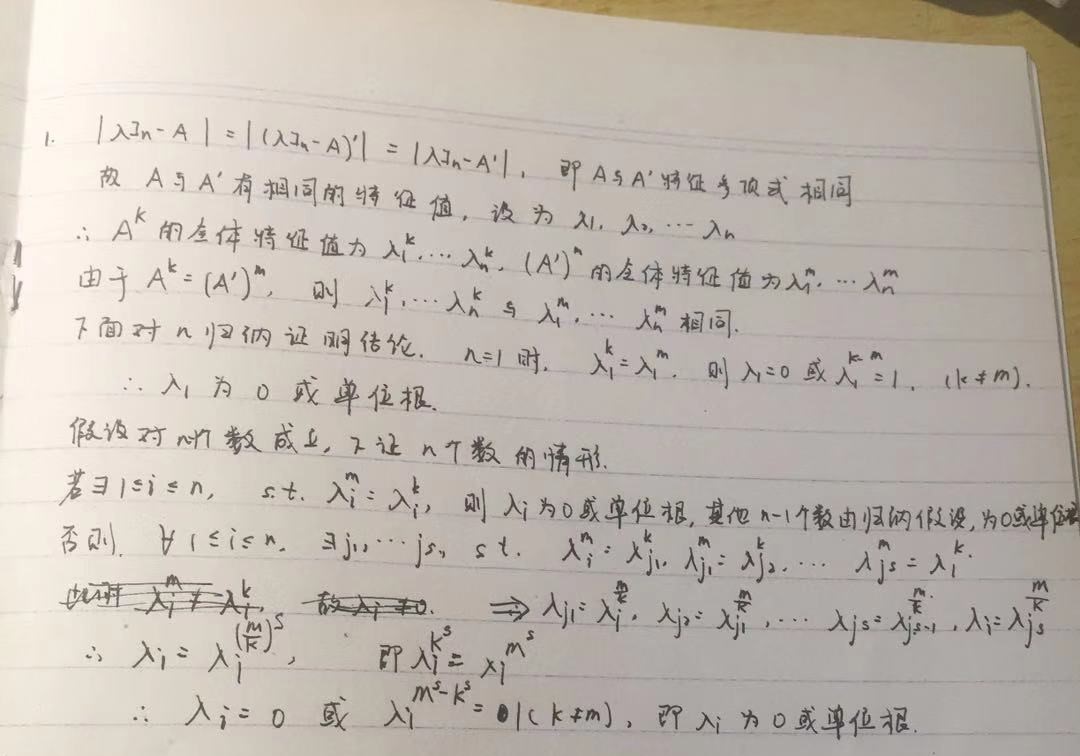 1. |λIn-A| = |(λIn-A)'| = |λIn-A'|, 即A与A'特征多项式相同
故 A与A'有相同的特征值, 设为 λ1, λ2, … λn
∴ A^k 的全体特征值为 λ1^k, … λn^k, (A')^m 的全体特征值为 λ1^m, … λn^m
由于 A^k = (A')^m, 则 λ1^k, … λn^k 与 λ1^m, … λn^m 相同.
下面对 n 归纳证明结论. n=1时, λ1^k = λ1^m, 则 λ1=0 或 λ1^(k-m) = 1, (k≠m).
∴ λ1 为 0 或单位根.
假设对 n-1个数成立, 下证 n个数的情形.
若∃ 1≤i≤n, s.t. λi^m = λi^k, 则 λi为0或单位根, 其他 n-1个数由归纳假设, 为0或单位根
否则, ∀ 1≤i≤n, ∃ j1, … js, s.t. λi^m = λj1^k, λj1^m = λj2^k, … λjs^m = λi^k.
⇒ λj1 = λi^(m/k), λj2 = λj1^(m/k), … λjs = λjs-1^(m/k), λi = λjs^(m/k)
∴ λi = λi^((m/k)^s), 即 λi^(k^s) = λi^(m^s)
∴ λi = 0 或 λi^(m^s-k^s) = 1 (k≠m), 即 λi 为0或单位根.